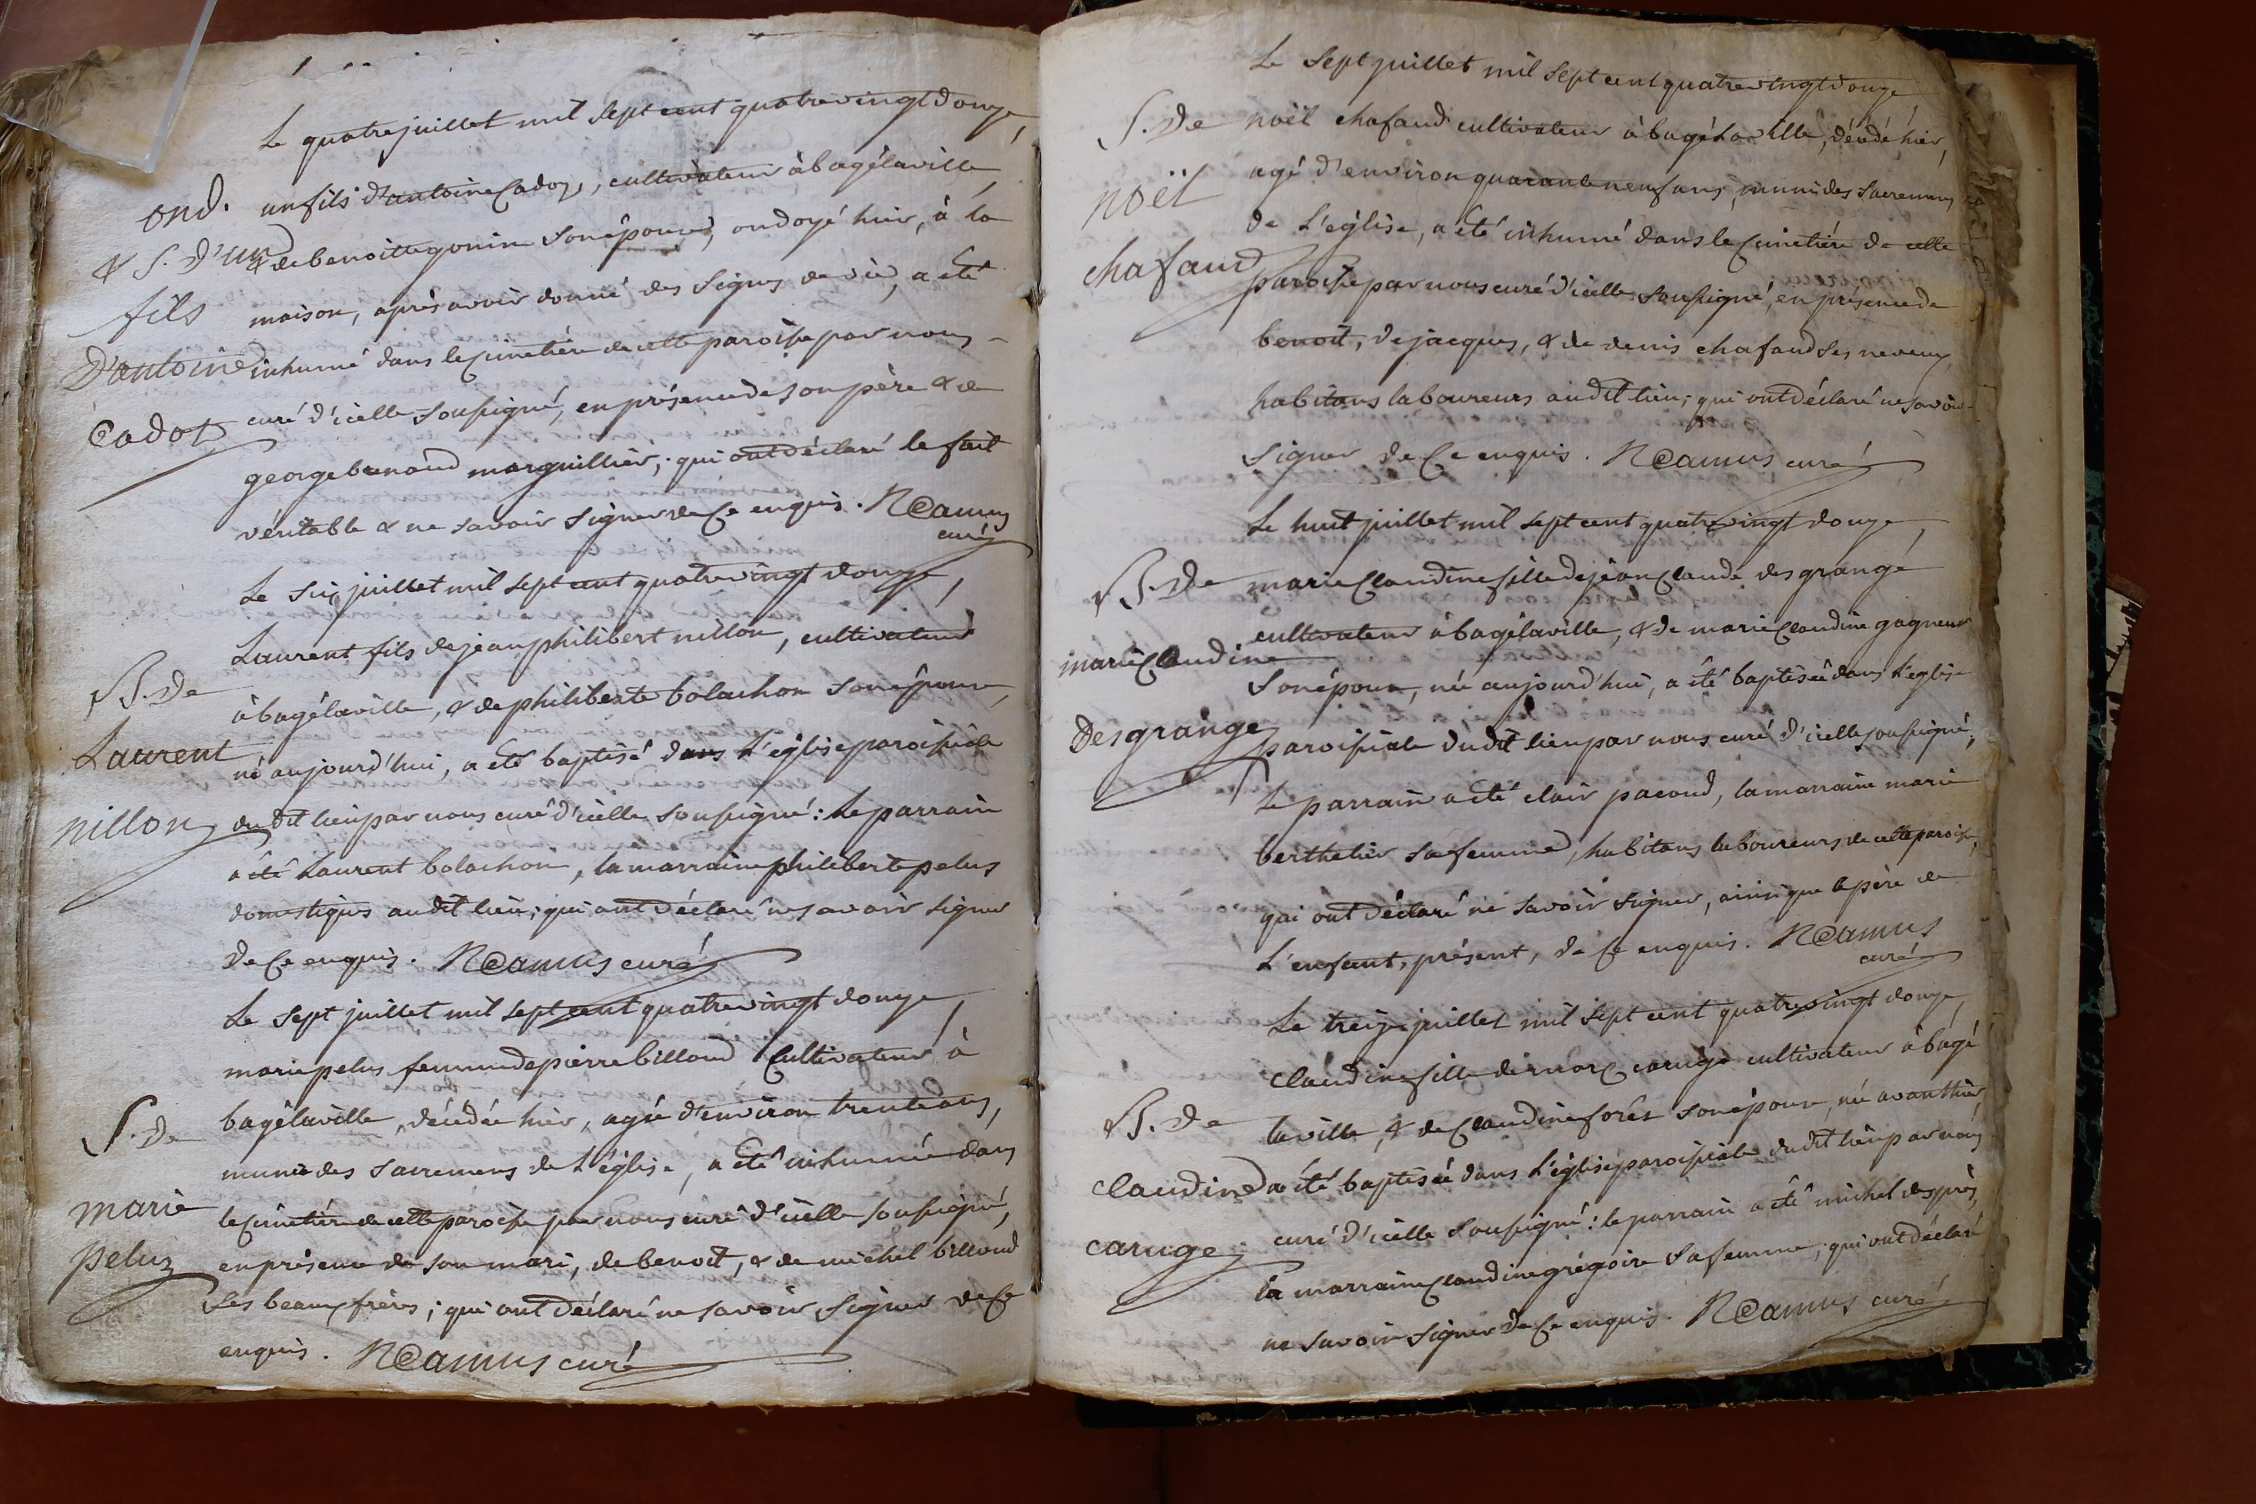 Le quatre juillet mil sept cent quatre vingt douze,
ond. un fils d'antoine Cadoz, cultivateur à bagélaville
& S. d'un & de benoitte gonin son épouse, ondoyé hier, à la
fils maison, après avoir donné des signes de vie, a été
D'antoine inhumé dans le cimetière de cette paroisse par nous
Cadoz curé d'icelle soussigné, en présence de son père & de
george brenaud marguillier; qui ont déclaré le fait
véritable & ne savoir signer de ce enquis. N Camus
curé
Le six juillet mil sept cent quatre vingt douze,
Laurent fils de jean philibert nillon, cultivateur
B. de à bagélaville, & de philiberte bolachon son épouse,
Laurent né aujourd'hui, a été baptisé dans l'église paroissiale
nillon du dit lieu par nous curé d'icelle soussigné: le parrain
a été Laurent bolachon, la marraine philiberte pelus
domestiques au dit lieu; qui ont déclaré ne savoir signer
de ce enquis. N Camus curé
Le sept juillet mil sept cent quatre vingt douze,
marie pelus femme de pierre billoud cultivateur à
S. de bagélaville, décédée hier, agée d'environ trente ans,
munie des sacremens de L'église, a été inhumée dans
marie le cimetière de cette paroisse par nous curé d'icelle soussigné,
peluz en présence de son mari, de benoit, & de michel billoud
ses beaux frères; qui ont déclaré ne savoir signer de ce
enquis. N Camus curé
Le sept juillet mil sept cent quatre vingt douze
S. de noël chafaud cultivateur à bagélaville, décédé hier,
noël agé d'environ quarante neuf ans, muni des sacremens
de L'église, a été inhumé dans le cimetière de cette
chafaud paroisse par nous curé d'icelle soussigné, en présence de
benoit, de jacques, & de denis chafaud ses neveux,
habitans laboureurs au dit lieu; qui ont déclaré ne savoir
signer de ce enquis. N Camus curé
Le huit juillet mil sept cent quatre vingt douze,
B. de marie Claudine fille de jean Claude desgrange
cultivateur à bagélaville, & de marie Claudine gagneur
marie Claudine son épouse, née aujourd'hui, a été baptisée dans L'église
Desgrange paroissiale du dit lieu par nous curé d'icelle soussigné,
Le parrain a été clair pacoud, la marraine marie
berthelier sa femme, habitans laboureurs de cette paroisse,
qui ont déclaré ne savoir signer, ainsi que le père de
L'enfant, présent, de ce enquis. N Camus
curé
Le treize juillet mil sept cent quatre vingt douze,
Claudine fille de marc caruge cultivateur à bagé
B. de la ville, & de Claudine forêt son épouse, née avant hier,
Claudine a été baptisée dans L'église paroissiale du dit lieu par nous
caruge curé d'icelle soussigné: le parrain a été michel desprès,
La marraine Claudine grégoire sa femme; qui ont déclaré
ne savoir signer de ce enquis. N Camus curé